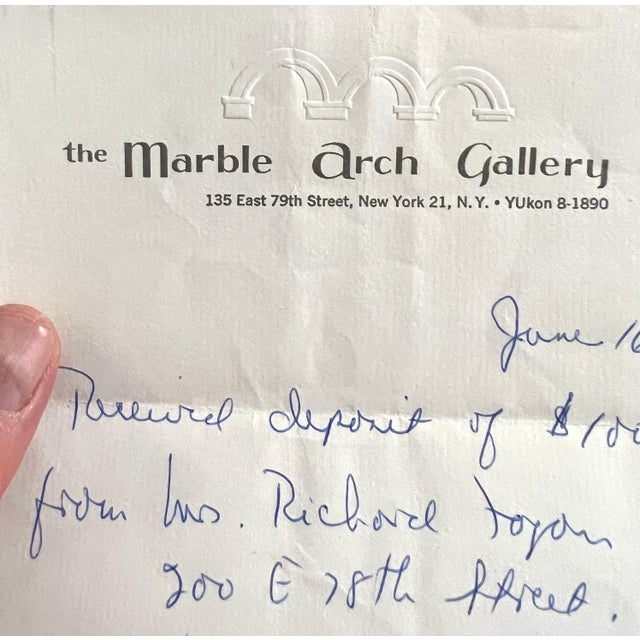 the Marble Arch Gallery
135 East 79th Street, New York 21, N.Y. • YUkon 8-1890
June 16
Received deposit of $100
from Mrs. Richard
200 E 78th Street.